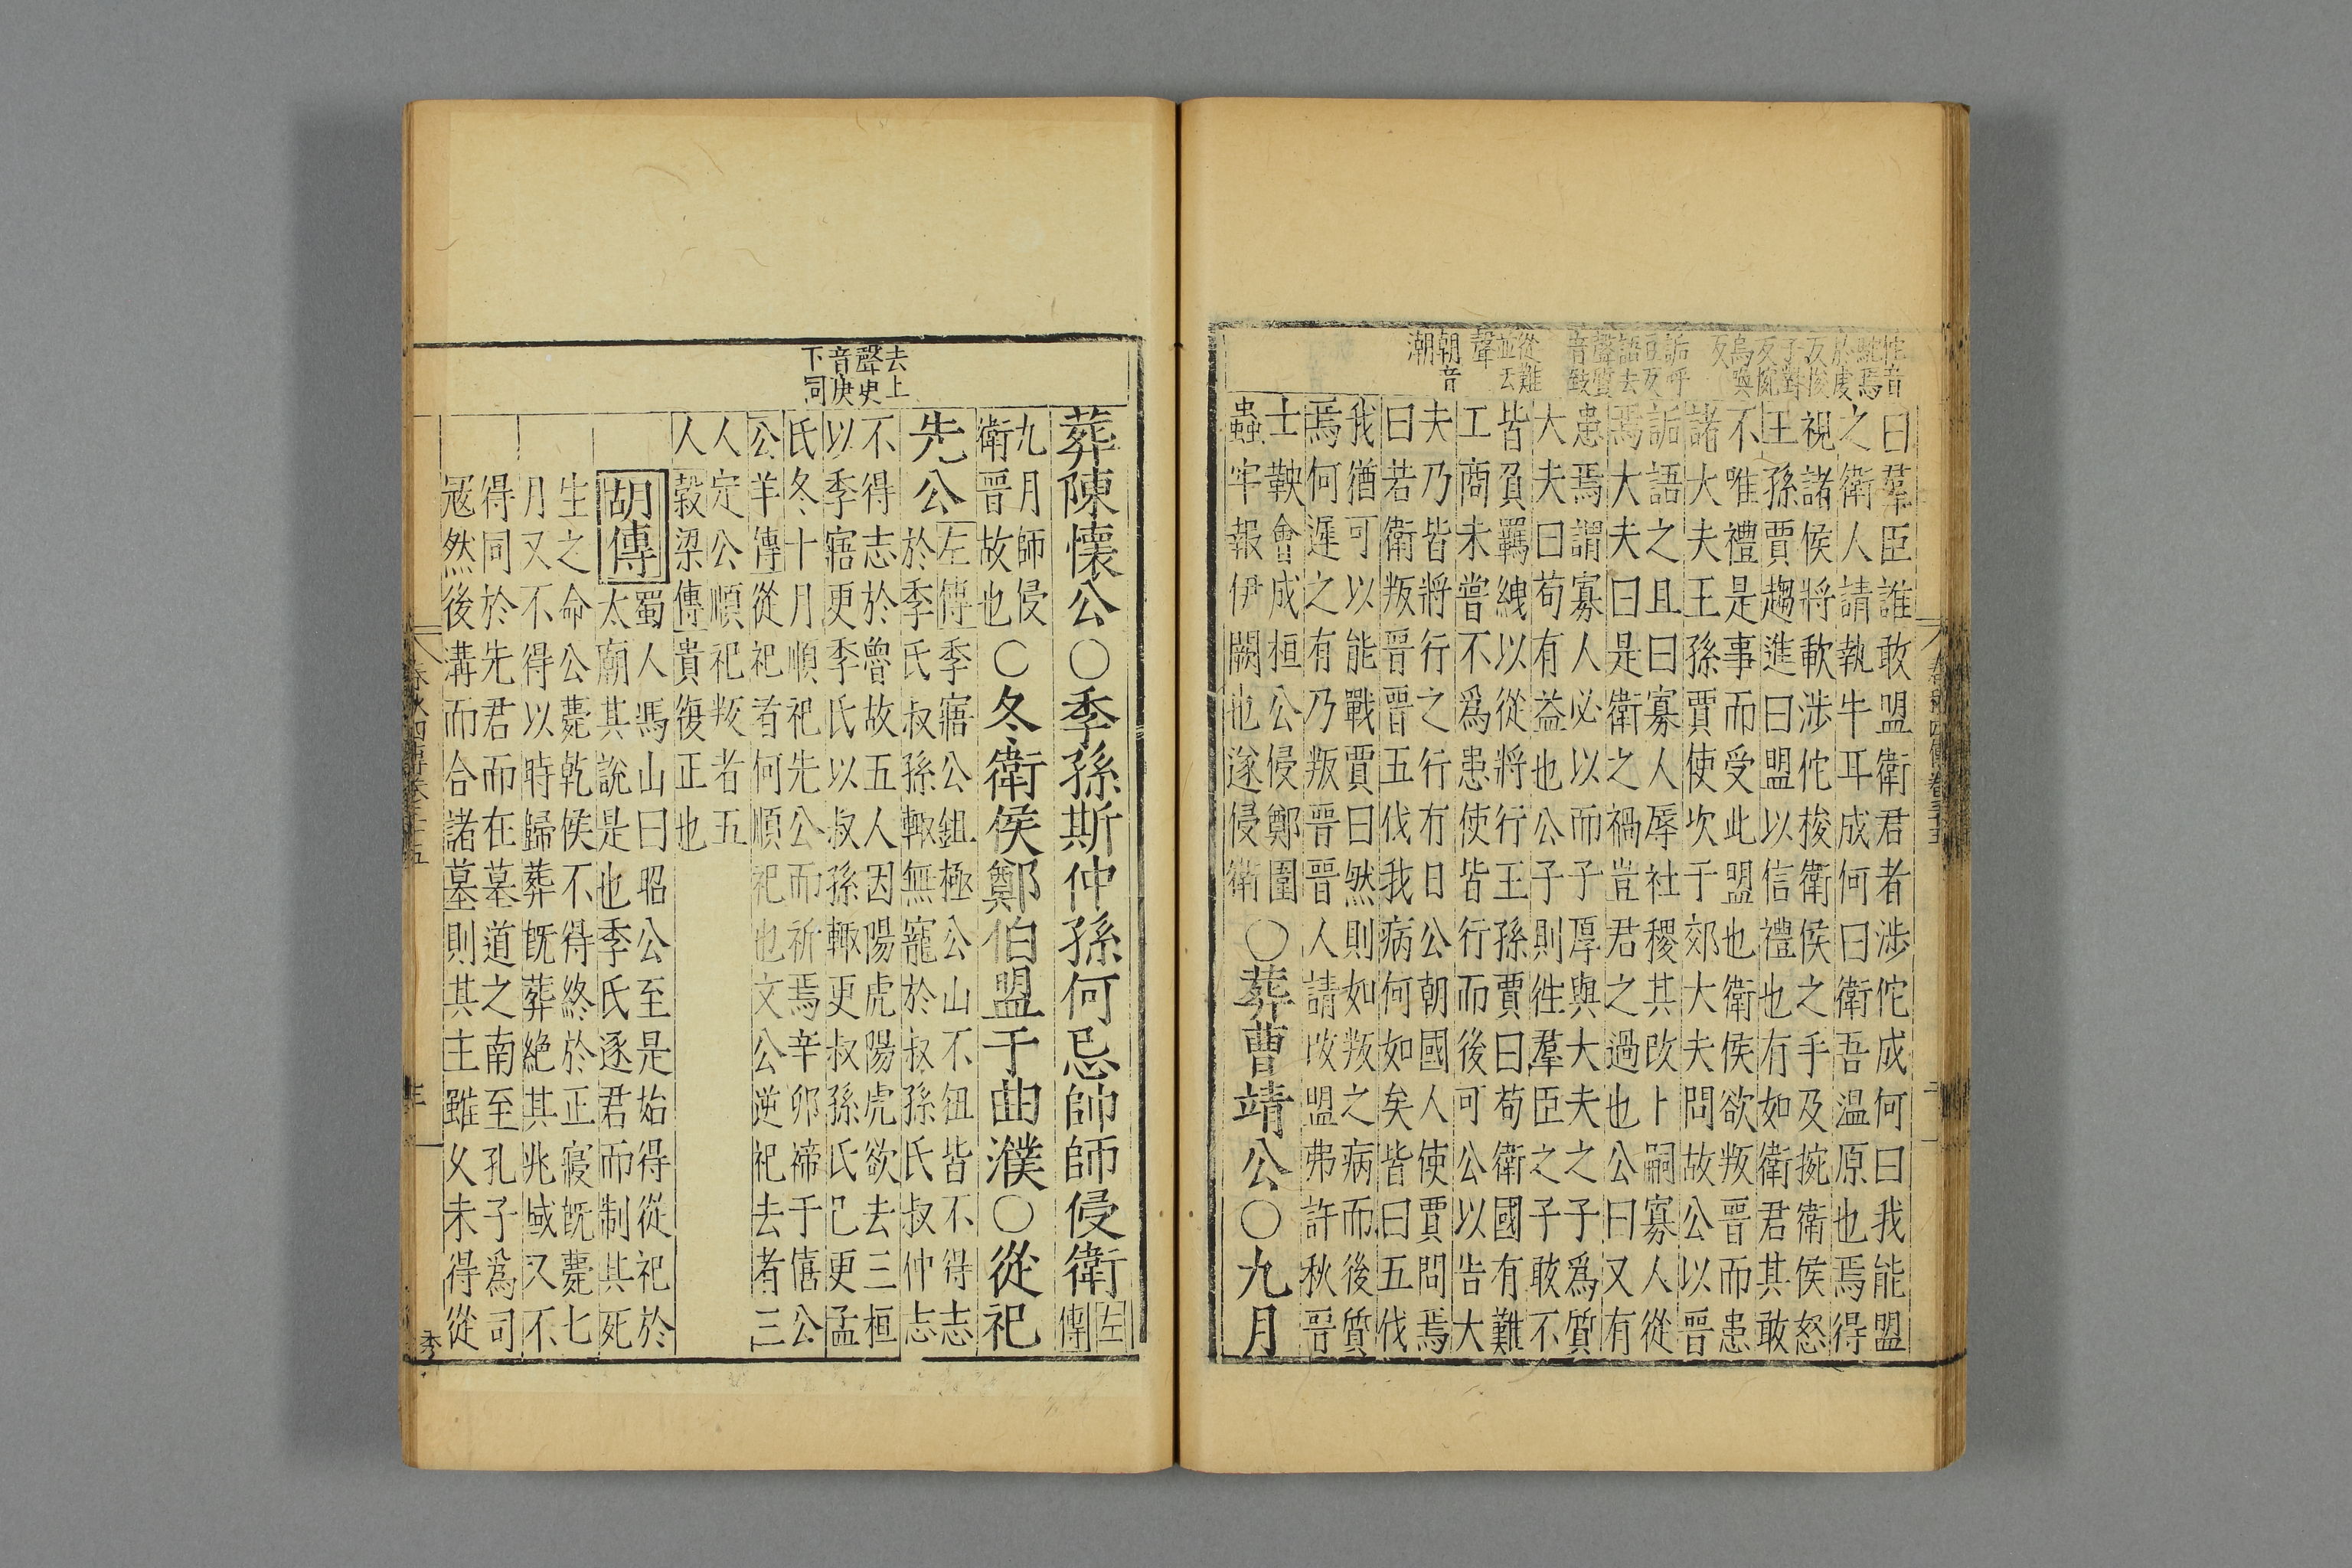 曰羣臣誰敢盟衛君者涉佗成何曰我能盟
之衛人請執牛耳成何曰衛吾温原也焉得
視諸侯將歃涉佗捘衛侯之手及捥衛侯怒
王孫賈趨進曰盟以信禮也有如衛君其敢
不唯禮是事而受此盟也衛侯欲叛晉而患
諸大夫王孫賈使次于郊大夫問故公以晉
詬語之且曰寡人辱社稷其改卜嗣寡人從
焉大夫曰是衛之禍豈君之過也公曰又有
患焉謂寡人必以而子厚與大夫之子爲質
大夫曰苟有益也公子則徃羣臣之子敢不
皆負羈絏以從將行王孫賈曰苟衛國有難
工商未嘗不爲患使皆行而後可公以告大
夫乃皆將行之行有日公朝國人使賈問焉
曰若衛叛晉晉五伐我病何如矣皆曰五伐
我猶可以能戰賈曰然則如叛之病而後質
焉何遲之有乃叛晉晉人請改盟弗許秋晉
士鞅會成桓公侵鄭圍
蟲牢報伊闕也遂侵衛
○葬曹靖公○九月
葬陳懷公○季孫斯仲孫何忌帥師侵衛
左傳
九月師侵
衛晉故也
○冬衛侯鄭伯盟于曲濮○從祀
先公
左傳季寤公鉏極公山不狃皆不得志
於季氏叔孫輒無寵於叔孫氏叔仲志
不得志於魯故五人因陽虎陽虎欲去三桓
以季寤更季氏以叔孫輒更叔孫氏已更孟
氏冬十月順祀先公而祈焉辛卯禘于僖公
公羊傳從祀者何順祀也文公逆祀去者三
人定公順祀叛者五
人穀梁傳貴復正也
胡傳
蜀人馮山曰昭公至是始得從祀於
太廟其說是也季氏逐君而制其死
生之命公薨乾侯不得終於正寢旣薨七
月又不得以時歸葬旣葬絶其兆域又不
得同於先君而在墓道之南至孔子爲司
冦然後溝而合諸墓則其主雖久未得從
去上
聲史
音庚
下同
朝音
潮
春秋四傳卷三十五